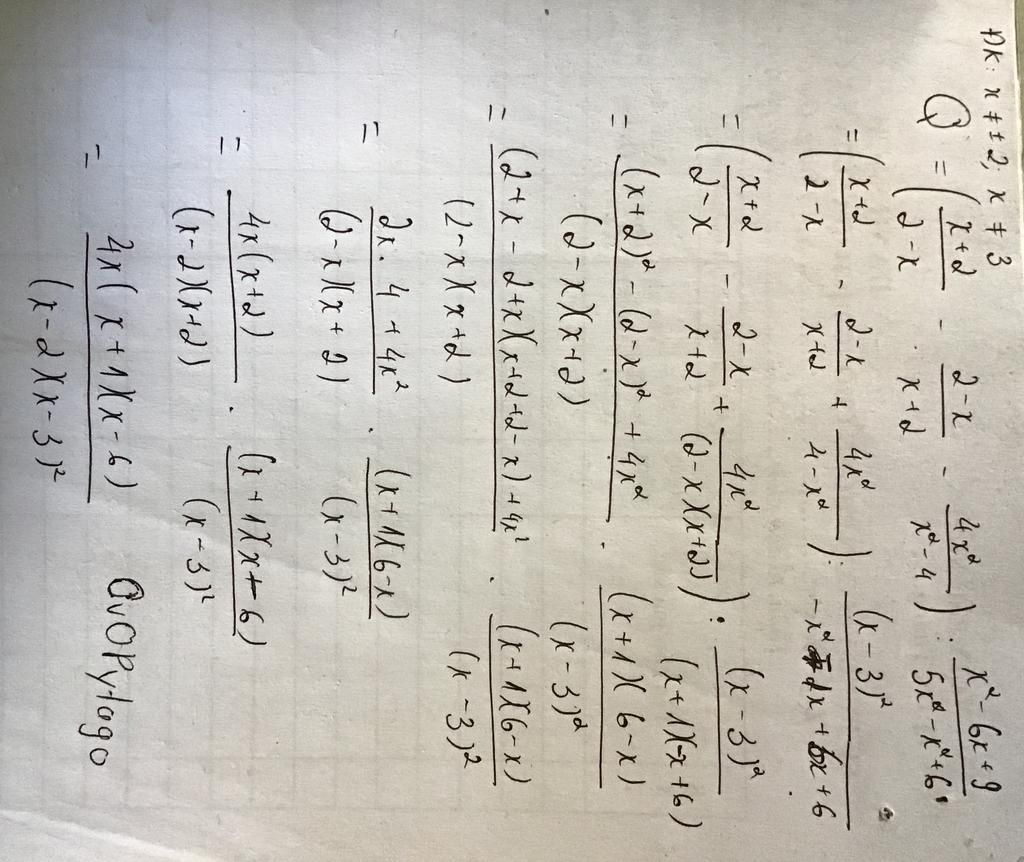 ĐK: x ≠ ±2; x ≠ 3
Q = (x+2/2-x - 2-x/x+2 - 4x²/x²-4) : x²-6x+9/5x²-x²+6
= (x+2/2-x - 2-x/x+2 + 4x²/4-x²) : (x-3)²/-x²-x+6x+6
= (x+2/2-x - 2-x/x+2 + 4x²/(2-x)(x+2)) : (x-3)²/(x+1)(-x+6)
= (x+2)²-(2-x)²+4x²/(2-x)(x+2) . (x+1)(6-x)/(x-3)²
= (2+x-2+x)(x+2+2-x)+4x²/(2-x)(x+2) . (x+1)(6-x)/(x-3)²
= 2x.4+4x²/(2-x)(x+2) . (x+1)(6-x)/(x-3)²
= 4x(x+2)/(x-2)(x+2) . (x+1)(x-6)/(x-3)²
= 4x(x+1)(x-6)/(x-2)(x-3)² QvOPytago